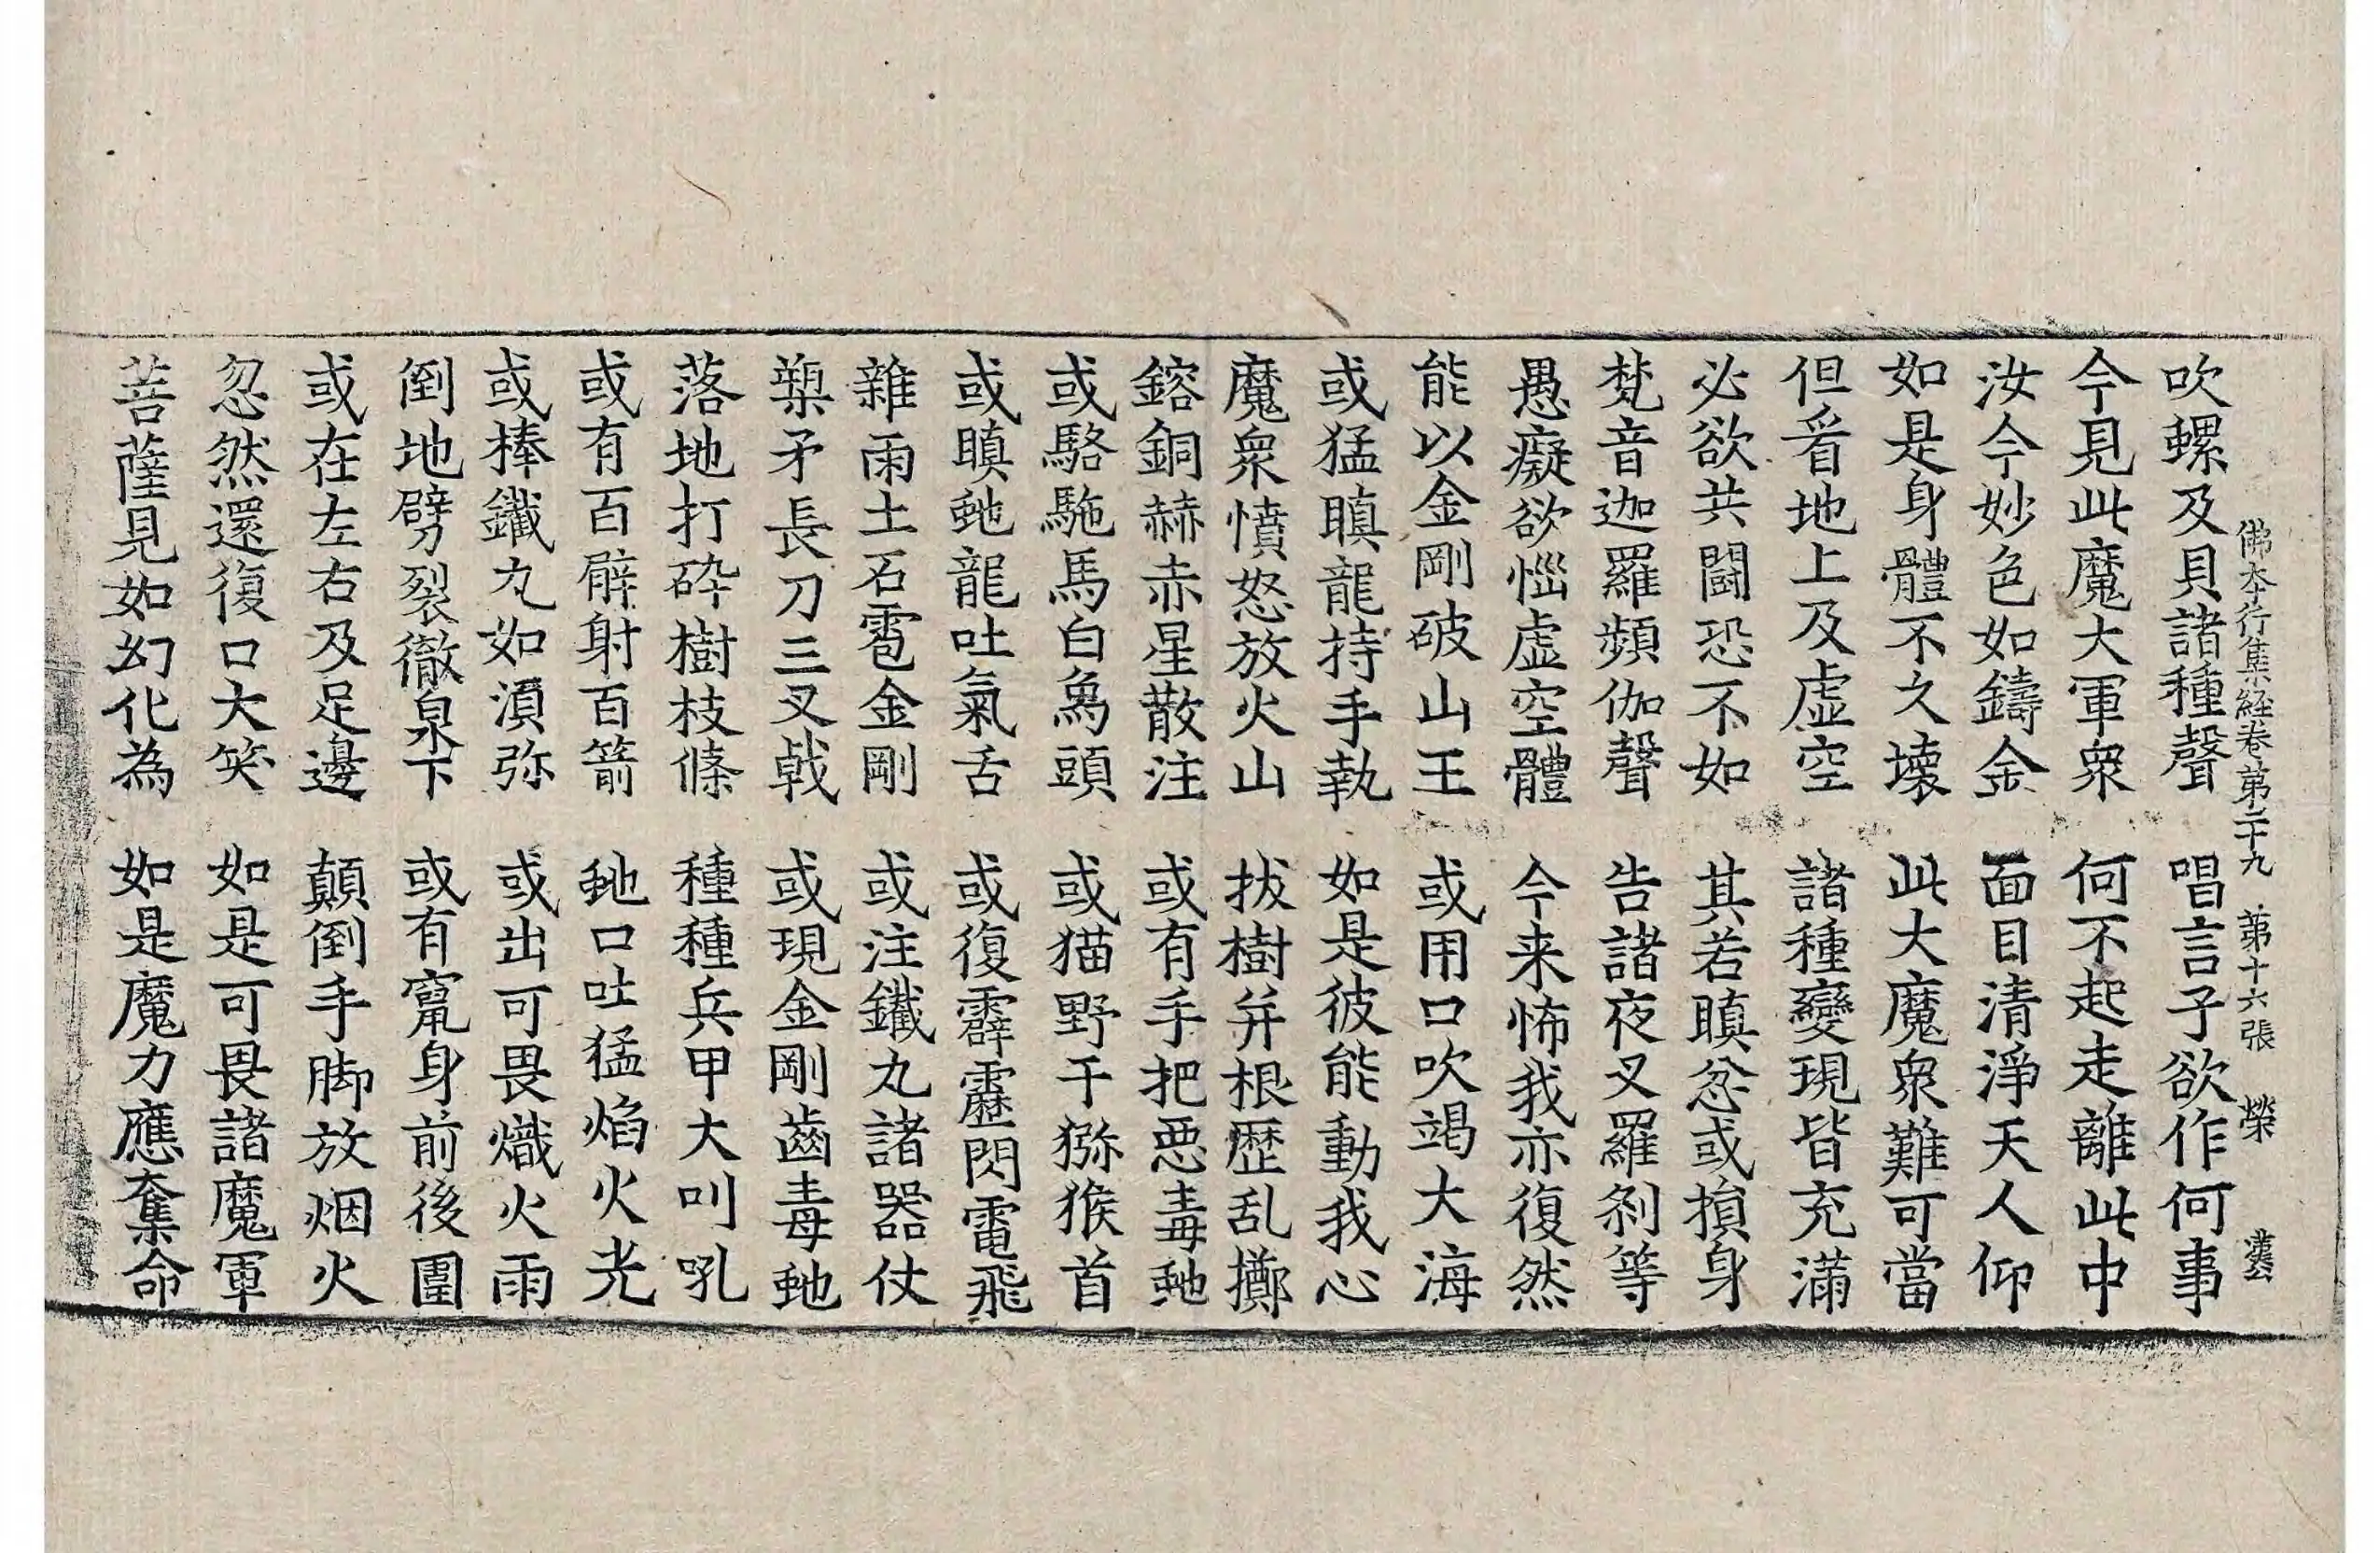 佛本行集經卷第二十九 第十六張 榮
吹螺及貝諸種聲 唱言子欲作何事
今見此魔大軍衆 何不起走離此中
汝今妙色如鑄金 面目清淨天人仰
如是身體不久壞 此大魔衆難可當
但看地上及虛空 諸種變現皆充滿
必欲共鬪恐不如 其若瞋忿或損身
梵音迦羅頻伽聲 告諸夜叉羅剎等
愚癡欲惱虛空體 今来怖我亦復然
能以金剛破山王 或用口吹竭大海
或猛瞋龍持手執 如是彼能動我心
魔衆憤怒放火山 拔樹并根歷乱擲
鎔銅赫赤星散注 或有手把惡毒虵
或駱駞馬白象頭 或猫野干獼猴首
或瞋虵龍吐氣舌 或復霹靂閃電飛
雜雨土石雹金剛 或注鐵丸諸器仗
槊矛長刀三叉戟 或現金剛齒毒虵
落地打碎樹枝條 種種兵甲大叫吼
或有百臂射百箭 虵口吐猛焰火光
或捧鐵丸如湏弥 或出可畏熾火雨
倒地劈裂徹泉下 或有竄身前後圍
或在左右及足邊 顛倒手脚放烟火
忽然還復口大笑 如是可畏諸魔軍
菩薩見如幻化為 如是魔力應奪命